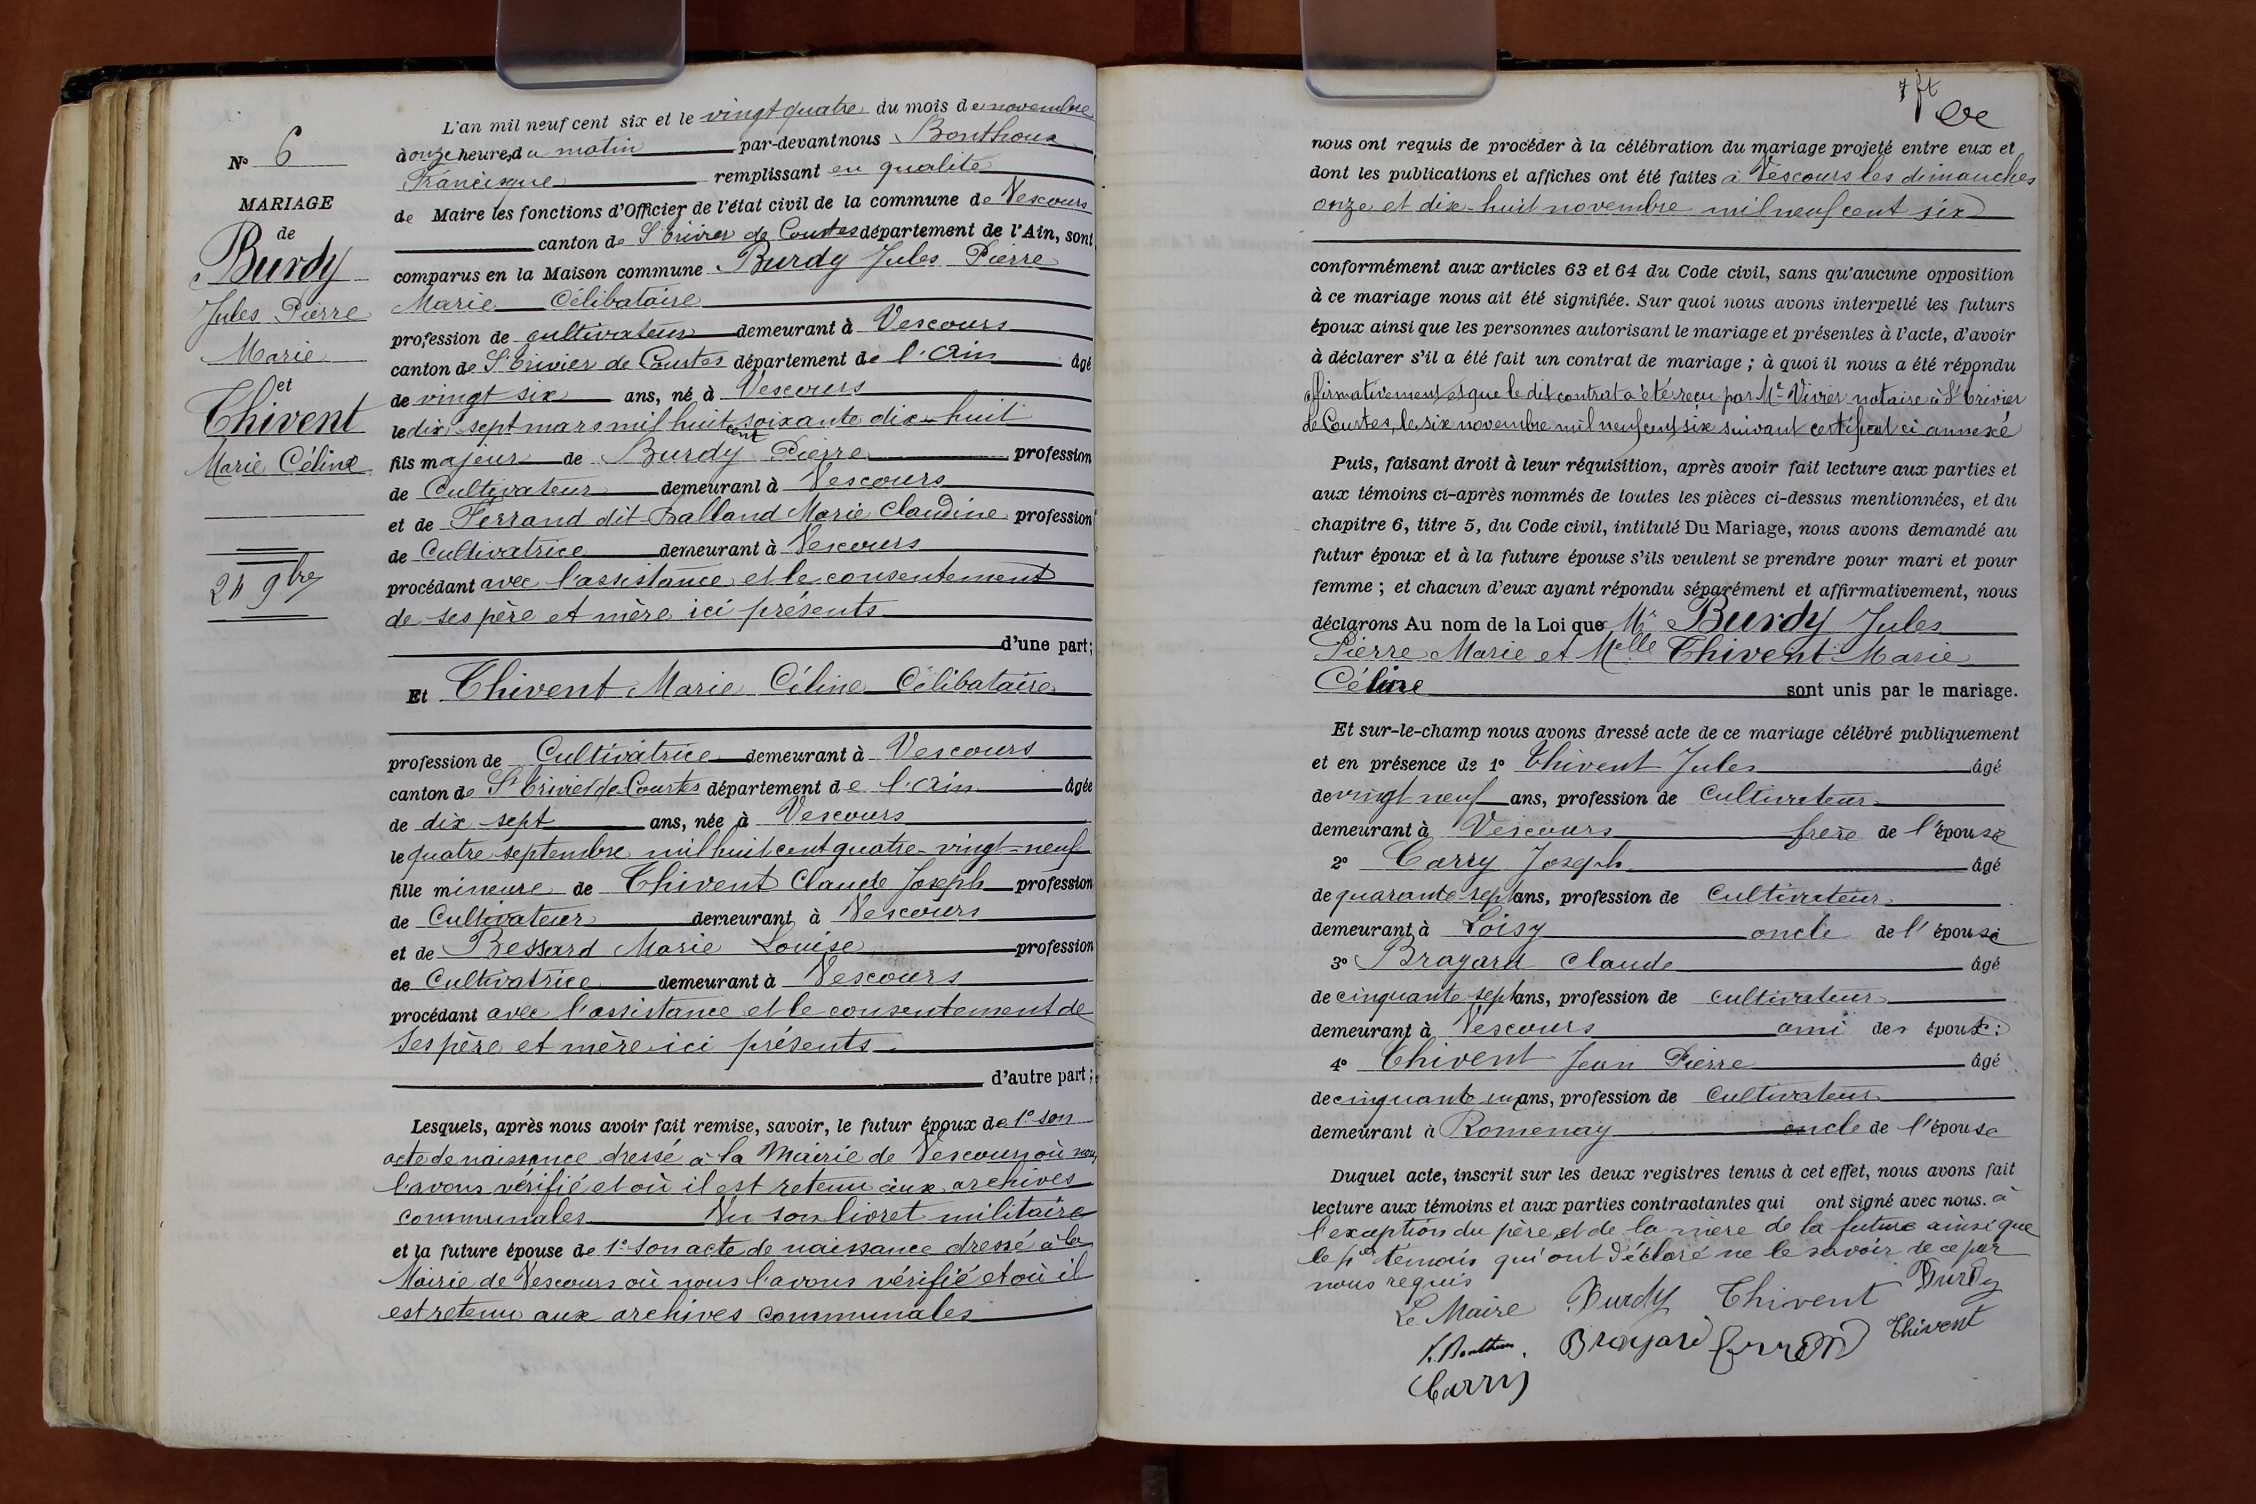 N° 6
MARIAGE
de
Burdy
Jules Pierre
Marie
et
Thivent
Marie Céline
24 9bre
L'an mil neuf cent six et le vingt quatre du mois de novembre
à onze heures du matin par-devant nous Bonthoux
Francisque remplissant en qualité
de Maire les fonctions d'Officier de l'état civil de la commune de Vescours
canton de St Trivier de Courtes département de l'Ain, sont
comparus en la Maison commune Burdy Jules Pierre
Marie Célibataire
profession de cultivateur demeurant à Vescours
canton de St Trivier de Courtes département de l'Ain âgé
de vingt six ans, né à Vescours
le dix sept mars mil huit cent soixante dix-huit
fils majeur de Burdy Pierre profession
de Cultivateur demeurant à Vescours
et de Ferrand dit Balland Marie Claudine profession
de Cultivatrice demeurant à Vescours
procédant avec l'assistance et le consentement
de ses père et mère ici présents
d'une part;
Et Thivent Marie Céline Célibataire
profession de Cultivatrice demeurant à Vescours
canton de St Trivier de Courtes département de l'Ain âgée
de dix sept ans, née à Vescours
le quatre septembre mil huit cent quatre-vingt-neuf
fille mineure de Thivent Claude Joseph profession
de Cultivateur demeurant à Vescours
et de Bessard Marie Louise profession
de Cultivatrice demeurant à Vescours
procédant avec l'assistance et le consentement de
ses père et mère ici présents
d'autre part;
Lesquels, après nous avoir fait remise, savoir, le futur époux de 1° son
acte de naissance dressé à la Mairie de Vescours où nous
l'avons vérifié et où il est retenu aux archives
communales Vu son livret militaire
et la future épouse de 1° son acte de naissance dressé à la
Mairie de Vescours où nous l'avons vérifié et où il
est retenu aux archives communales
7 ft
nous ont requis de procéder à la célébration du mariage projeté entre eux et
dont les publications et affiches ont été faites à Vescours les dimanches
onze et dix-huit novembre mil neuf cent six
conformément aux articles 63 et 64 du Code civil, sans qu'aucune opposition
à ce mariage nous ait été signifiée. Sur quoi nous avons interpellé les futurs
époux ainsi que les personnes autorisant le mariage et présentes à l'acte, d'avoir
à déclarer s'il a été fait un contrat de mariage ; à quoi il nous a été répondu
affirmativement et que le dit contrat a été reçu par Me Vivier notaire à St Trivier
de Courtes, le six novembre mil neuf cent six suivant certificat ci annexé
Puis, faisant droit à leur réquisition, après avoir fait lecture aux parties et
aux témoins ci-après nommés de toutes les pièces ci-dessus mentionnées, et du
chapitre 6, titre 5, du Code civil, intitulé Du Mariage, nous avons demandé au
futur époux et à la future épouse s'ils veulent se prendre pour mari et pour
femme ; et chacun d'eux ayant répondu séparément et affirmativement, nous
déclarons Au nom de la Loi que Mr Burdy Jules
Pierre Marie et Melle Thivent Marie
Céline sont unis par le mariage.
Et sur-le-champ nous avons dressé acte de ce mariage célébré publiquement
et en présence de 1° Thivent Jules âgé
de vingt neuf ans, profession de Cultivateur
demeurant à Vescours frère de l'épouse
2° Carry Joseph âgé
de quarante sept ans, profession de Cultivateur
demeurant à Loisy oncle de l'épouse
3° Brayard Claude âgé
de cinquante sept ans, profession de cultivateur
demeurant à Vescours ami des époux;
4° Thivent Jean Pierre âgé
de cinquante un ans, profession de Cultivateur
demeurant à Romenay oncle de l'épouse
Duquel acte, inscrit sur les deux registres tenus à cet effet, nous avons fait
lecture aux témoins et aux parties contractantes qui ont signé avec nous. à
l'exception du père et de la mère de la future ainsi que
le 4e témoin qui ont déclaré ne le savoir de ce par
nous requis
Le Maire Burdy Thivent Burdy
F. Bonthoux Brayard Ferrand Thivent
Carry